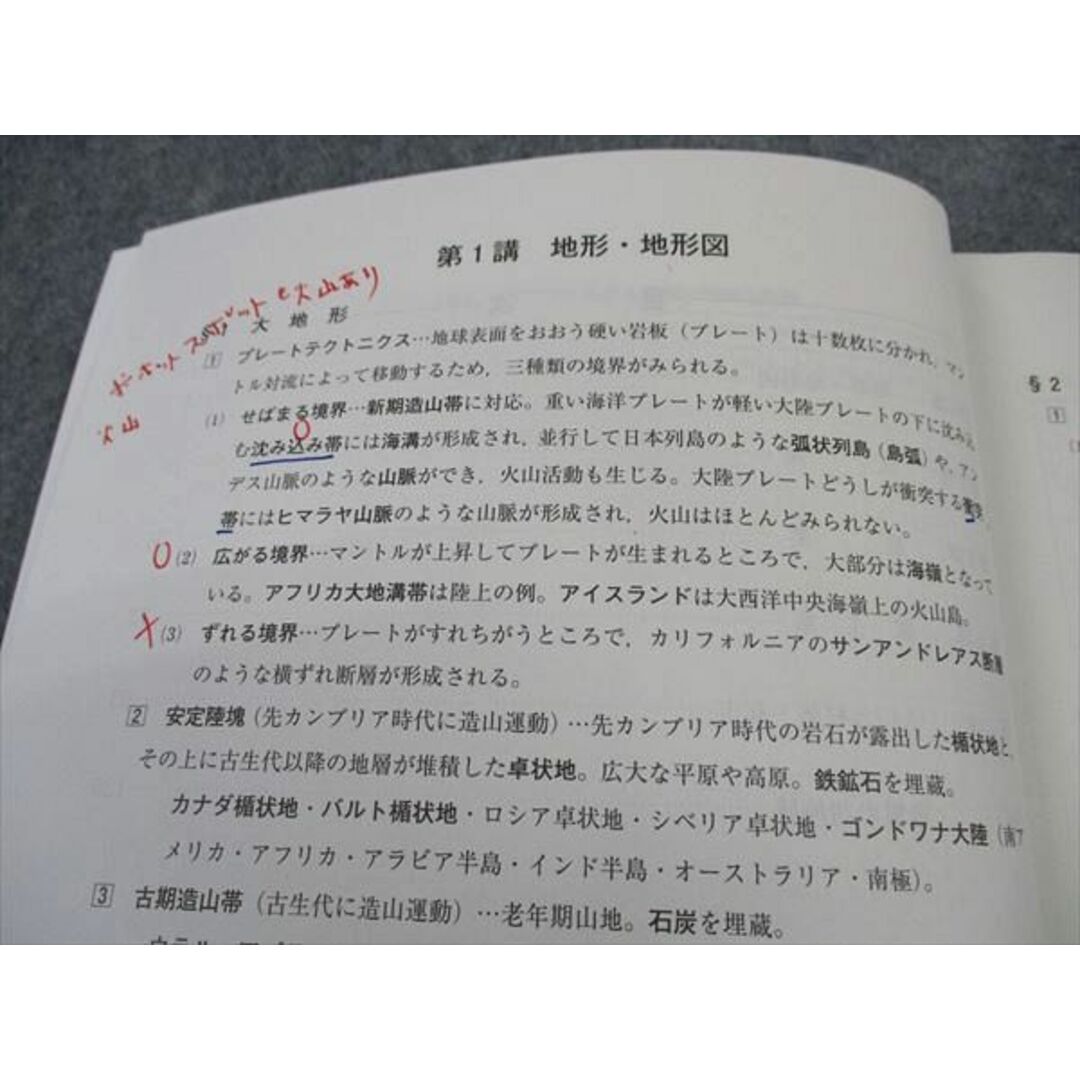 第1講 地形・地形図
ホットスポットも火山あり
火山
大地形
1 プレートテクトニクス…地球表面をおおう硬い岩板（プレート）は十数枚に分かれ，マン
トル対流によって移動するため，三種類の境界がみられる。
(1) せばまる境界…新期造山帯に対応。重い海洋プレートが軽い大陸プレートの下に沈み込
む沈み込み帯には海溝が形成され，並行して日本列島のような弧状列島（島弧）や，アン
デス山脈のような山脈ができ，火山活動も生じる。大陸プレートどうしが衝突する衝突
帯にはヒマラヤ山脈のような山脈が形成され，火山はほとんどみられない。
○ (2) 広がる境界…マントルが上昇してプレートが生まれるところで，大部分は海嶺となって
いる。アフリカ大地溝帯は陸上の例。アイスランドは大西洋中央海嶺上の火山島。
× (3) ずれる境界…プレートがすれちがうところで，カリフォルニアのサンアンドレアス断層
のような横ずれ断層が形成される。
2 安定陸塊（先カンブリア時代に造山運動）…先カンブリア時代の岩石が露出した楯状地と，
その上に古生代以降の地層が堆積した卓状地。広大な平原や高原。鉄鉱石を埋蔵。
カナダ楯状地・バルト楯状地・ロシア卓状地・シベリア卓状地・ゴンドワナ大陸（南ア
メリカ・アフリカ・アラビア半島・インド半島・オーストラリア・南極）。
3 古期造山帯（古生代に造山運動）…老年期山地。石炭を埋蔵。
§2
1